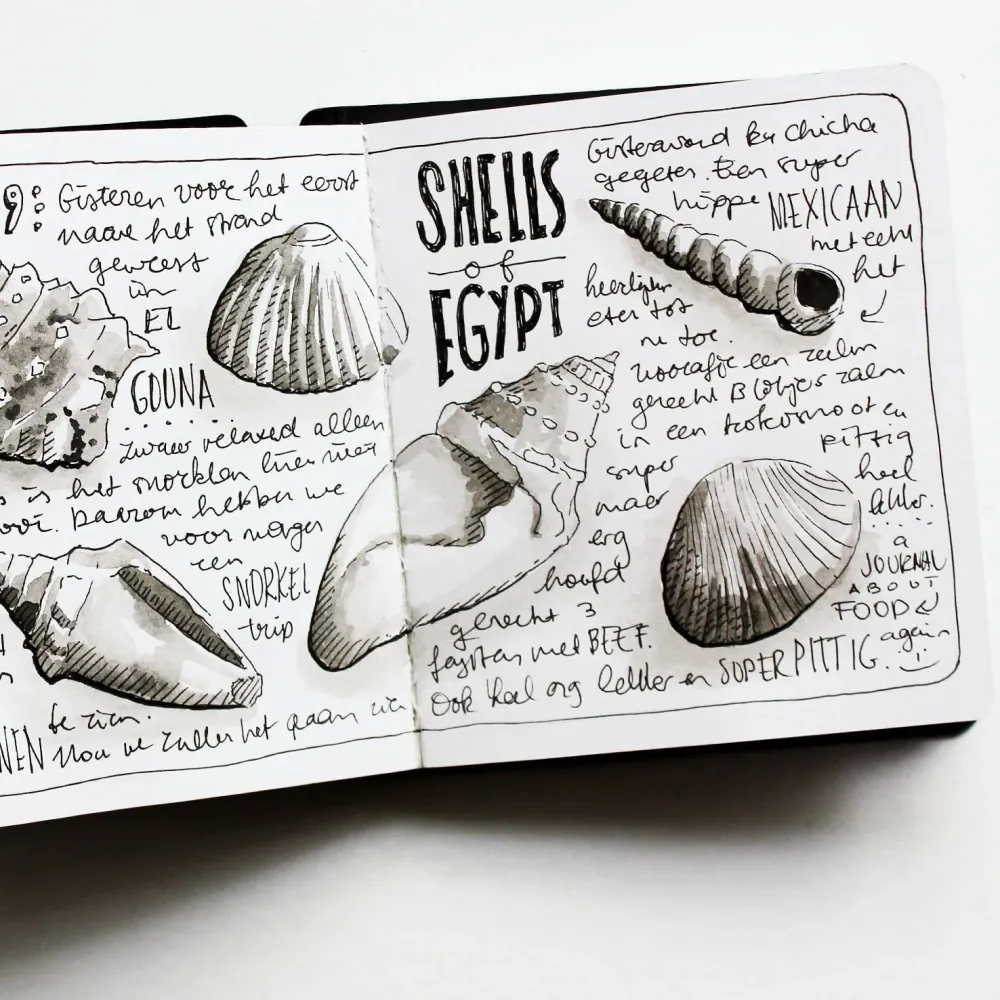 9: Gisteren voor het eerst
naar het strand
geweest
in
EL
GOUNA
zwaar relaxed alleen
is het snorklen hier niet
Daarom hebben we
voor morgen
een
SNORKEL
trip
te zien.
NEN Nou we zullen het gaan zien
SHELLS
of
EGYPT
Gisteravond bij Chicha
gegeten. Een super
hippe MEXICAAN
met echt
het
heerlijkste
eten tot
nu toe.
Vooraf een zalm
gerecht Blokjes zalm
in een kokosnoot en
super
pittig
maar
heel
erg
lekker.
hoofd
gerecht 3
fajitas met BEEF.
Ook heel erg lekker en SUPER PITTIG.
a
JOURNAL
ABOUT
FOOD
again